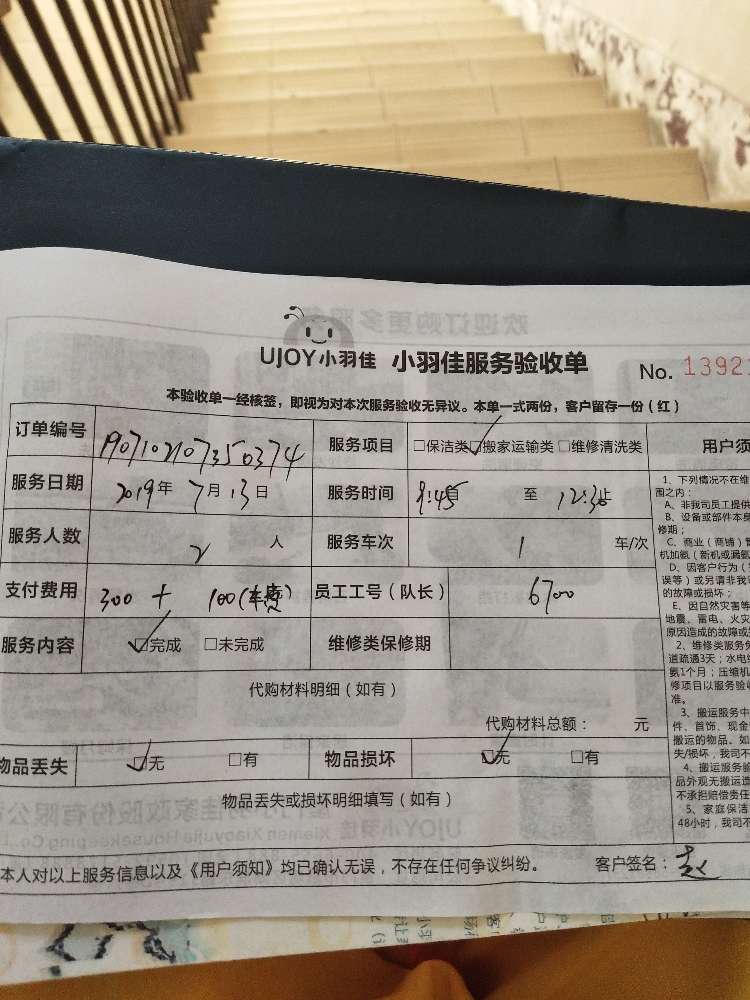 UJOY小羽佳 小羽佳服务验收单 No. 13921
本验收单一经核签，即视为对本次服务验收无异议。本单一式两份，客户留存一份（红）
订单编号 1907102107350374 服务项目 □保洁类 ☑搬家运输类 □维修清洗类 用户须
服务日期 2019年 7月 13日 服务时间 9:45 至 12:36
服务人数 2 人 服务车次 1 车/次
支付费用 300 + 100(车费) 员工工号（队长） 6700
服务内容 ☑完成 □未完成 维修类保修期
代购材料明细（如有）
代购材料总额： 元
物品丢失 ☑无 □有 物品损坏 ☑无 □有
物品丢失或损坏明细填写（如有）
本人对以上服务信息以及《用户须知》均已确认无误，不存在任何争议纠纷。 客户签名：
1、下列情况不在维
围之内：
A、非我司员工提供
B、设备或部件本身
修期；
C、商业（商铺）
机加氨（新机或漏氨
D、因客户行为
误等）或另请非我
的故障或损坏；
E、因自然灾害等
地震、雷电、火灾
原因造成的故障或
2、维修类服务
道疏通3天；水电
氨1个月；压缩机
修项目以服务验
准。
3、搬运服务中
件、首饰、现金
搬运的物品。如
失/损坏，我司不
4、搬运服务
品外观无搬运
不承担赔偿责任
5、家庭保洁
48小时，我司不